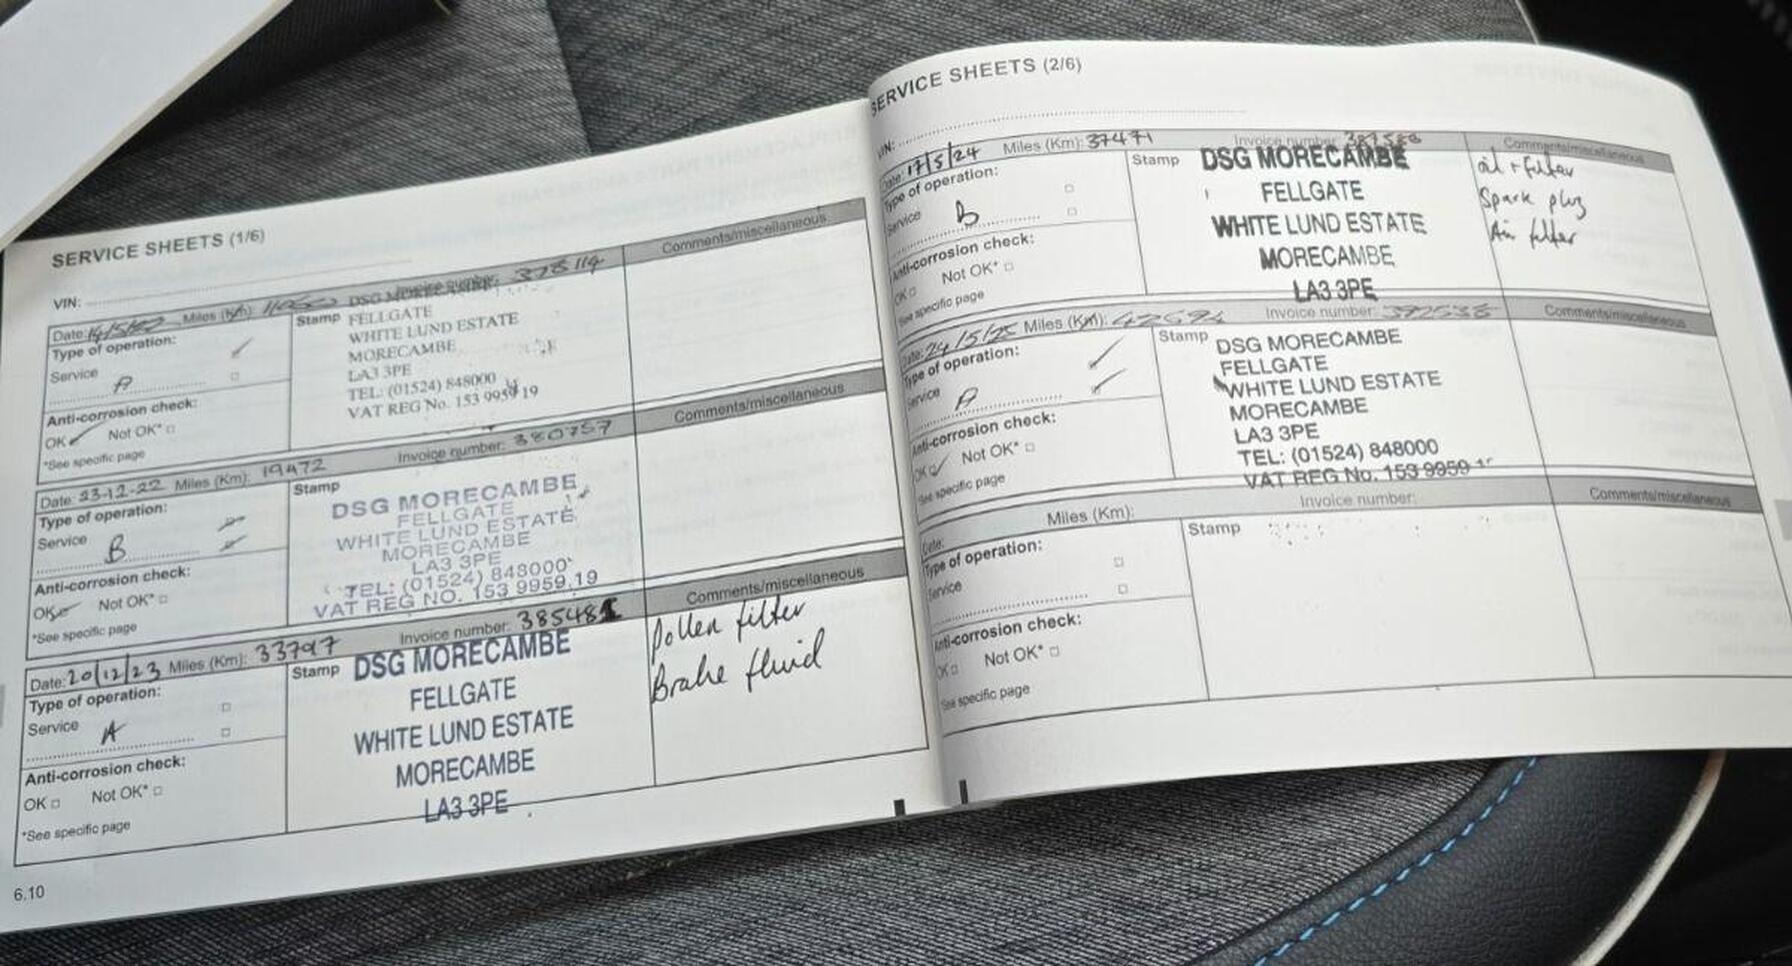 SERVICE SHEETS (1/6)
VIN:
Date: 14/5/22 Miles (Km): Invoice number: 378114 Comments/miscellaneous
Type of operation:
Service A
Anti-corrosion check:
OK Not OK*
*See specific page
Stamp DSG MORECAMBE
FELLGATE
WHITE LUND ESTATE
MORECAMBE
LA3 3PE
TEL: (01524) 848000
VAT REG No. 153 9959 19
Date: 23-12-22 Miles (Km): 19472 Invoice number: 380757 Comments/miscellaneous
Type of operation:
Service B
Anti-corrosion check:
OK Not OK*
*See specific page
Stamp
DSG MORECAMBE
FELLGATE
WHITE LUND ESTATE
MORECAMBE
LA3 3PE
TEL: (01524) 848000
VAT REG NO. 153 9959.19
Date: 20/12/23 Miles (Km): 33797 Invoice number: 385481 Comments/miscellaneous
Type of operation:
Service A
Anti-corrosion check:
OK Not OK*
*See specific page
Stamp DSG MORECAMBE
FELLGATE
WHITE LUND ESTATE
MORECAMBE
LA3 3PE
Pollen filter
Brake fluid
6.10
SERVICE SHEETS (2/6)
VIN:
Date: 17/5/24 Miles (Km): 37471 Invoice number: Comments/miscellaneous
Type of operation:
Service B
Anti-corrosion check:
OK Not OK*
See specific page
Stamp DSG MORECAMBE
FELLGATE
WHITE LUND ESTATE
MORECAMBE
LA3 3PE
oil + filter
Spark plug
Air filter
Date: 24/5/25 Miles (Km): 42594 Invoice number: 392538 Comments/miscellaneous
Type of operation:
Service A
Anti-corrosion check:
OK Not OK*
See specific page
Stamp DSG MORECAMBE
FELLGATE
WHITE LUND ESTATE
MORECAMBE
LA3 3PE
TEL: (01524) 848000
VAT REG No. 153 9959
Date: Miles (Km): Invoice number: Comments/miscellaneous
Type of operation:
Service
Anti-corrosion check:
OK Not OK*
See specific page
Stamp